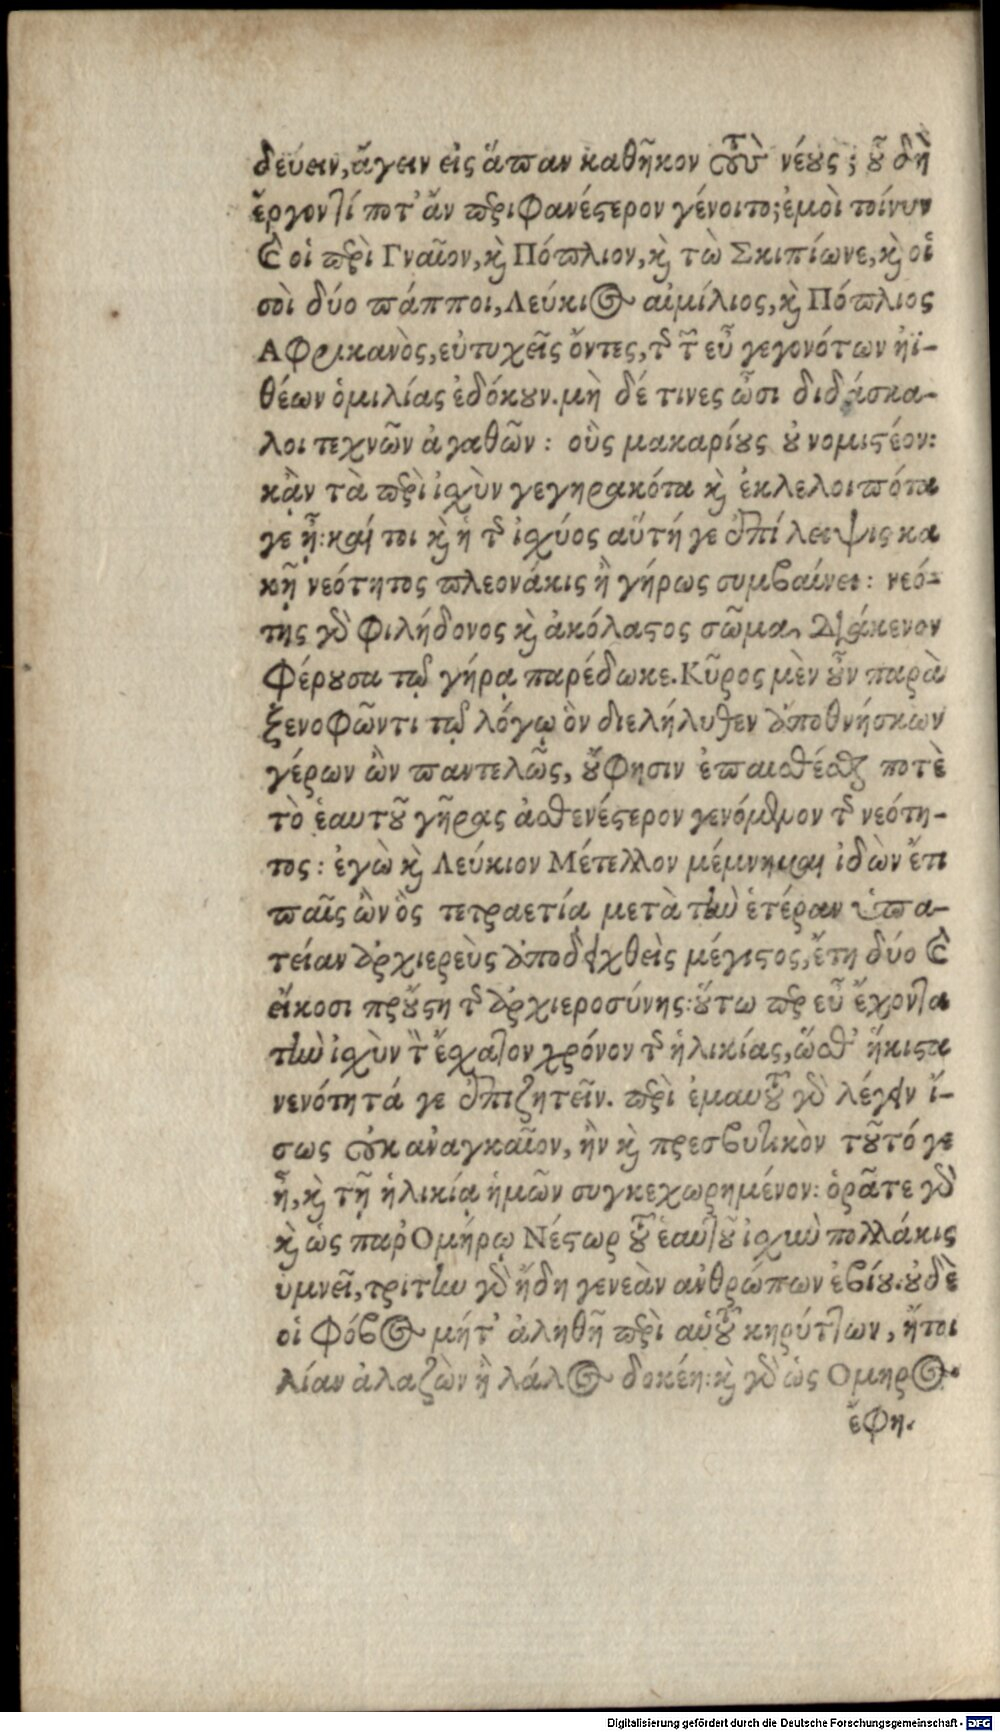 δεύειν, ἄγειν εἰς ἅπαν καθῆκον τοὺς νέους; οὗ δὴ
ἔργον τί ποτ' ἂν περιφανέστερον γένοιτο; ἐμοὶ τοίνυν
καὶ οἱ περὶ Γναῖον, καὶ Πόπλιον, καὶ τὼ Σκιπίωνε, καὶ οἱ
σοὶ δύο πάπποι, Λεύκιος αἰμίλιος, καὶ Πόπλιος
Αφρικανὸς, εὐτυχεῖς ὄντες, τῆς τῶν εὖ γεγονότων ἠϊ-
θέων ὁμιλίας ἐδόκουν. μὴ δέ τινες ὦσι διδάσκα-
λοι τεχνῶν ἀγαθῶν: οὓς μακαρίους οὐ νομιστέον:
κἂν τὰ περὶ ἰσχὺν γεγηρακότα καὶ ἐκλελοιπότα
γε ᾖ: καί τοι καὶ ἡ τῆς ἰσχύος αὕτή γε ἐπίλειψις κα
κῇ νεότητος πλεονάκις ἢ γήρως συμβαίνει: νεό-
της γὰρ φιλήδονος καὶ ἀκόλαστος σῶμα διάκενον
φέρουσα τῷ γήρᾳ παρέδωκε. Κῦρος μὲν οὖν παρὰ
ξενοφῶντι τῷ λόγῳ ὃν διελήλυθεν ἀποθνήσκων
γέρων ὢν παντελῶς, οὔφησιν ἐπαισθέσθαι ποτὲ
τὸ ἑαυτοῦ γῆρας ἀσθενέστερον γενόμενον τῆς νεότη-
τος: ἐγὼ καὶ Λεύκιον Μέτελλον μέμνημαι ἰδὼν ἔτι
παῖς ὢν ὃς τετραετίᾳ μετὰ τὴν ἑτέραν ὑπα-
τείαν ἀρχιερεὺς ἀποδειχθεὶς μέγιστος, ἔτη δύο καὶ
εἴκοσι προὔστη τῆς ἀρχιεροσύνης: οὕτω περ εὖ ἔχοντα
τὴν ἰσχὺν τὸν ἔσχατον χρόνον τῆς ἡλικίας, ὥσθ' ἥκιστα
νενότητά γε ἐπιζητεῖν. περὶ ἐμαυτοῦ γὰρ λέγειν ἴ-
σως οὐκ αναγκαῖον, ἢν καὶ πρεσβυτικὸν τοῦτό γε
ᾖ, καὶ τῇ ἡλικίᾳ ἡμῶν συγκεχωρημένον: ὁρᾶτε γὰρ
καὶ ὡς παρ' Ομήρῳ Νέστωρ τοῦ ἑαυτοῦ ἰσχὺν πολλάκις
υμνεῖ, τρίτην γὰρ ἤδη γενεὰν ανθρώπων ἐβίου. οὐδὲ
οἱ φόβος μήτ' ἀληθῆ περὶ αὑτοῦ κηρύττων, ἤτοι
λίαν ἀλαζὼν ἢ λάλος δοκέη: καὶ γὰρ ὡς Ομηρος
ἔφη.
Digitalisierung gefördert durch die Deutsche Forschungsgemeinschaft - DFG